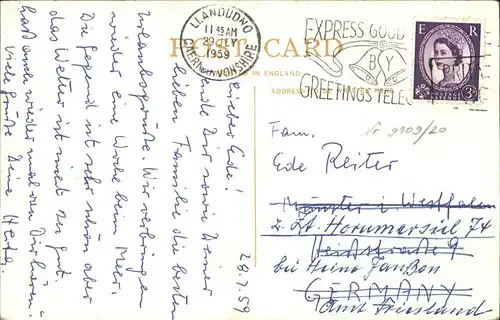 POST CARD
LLANDUDNO
11 45 AM
29 JLY
1959
CAERNARVONSHIRE
EXPRESS GOOD
BY
GREETINGS TELE
E R
POSTAGE
3D
IN ENGLAND
ADDRESS
28.7.59
Lieber Ede!
Sende Dir sowie Deiner
lieben Familie die besten
Urlaubsgrüße. Wir verbringen
wieder eine Woche beim Meer.
Die Gegend ist sehr schön aber
das Wetter ist nicht so gut
hast auch wieder mal von Dir hören.
Viele Grüße Deine
Nr 9109/20
Fam.
Ede Reiter
Münster i. Westfalen
z. Zt. Horumersiel 74
9
bei Heino Janßen
GERMANY
Amt Friesland